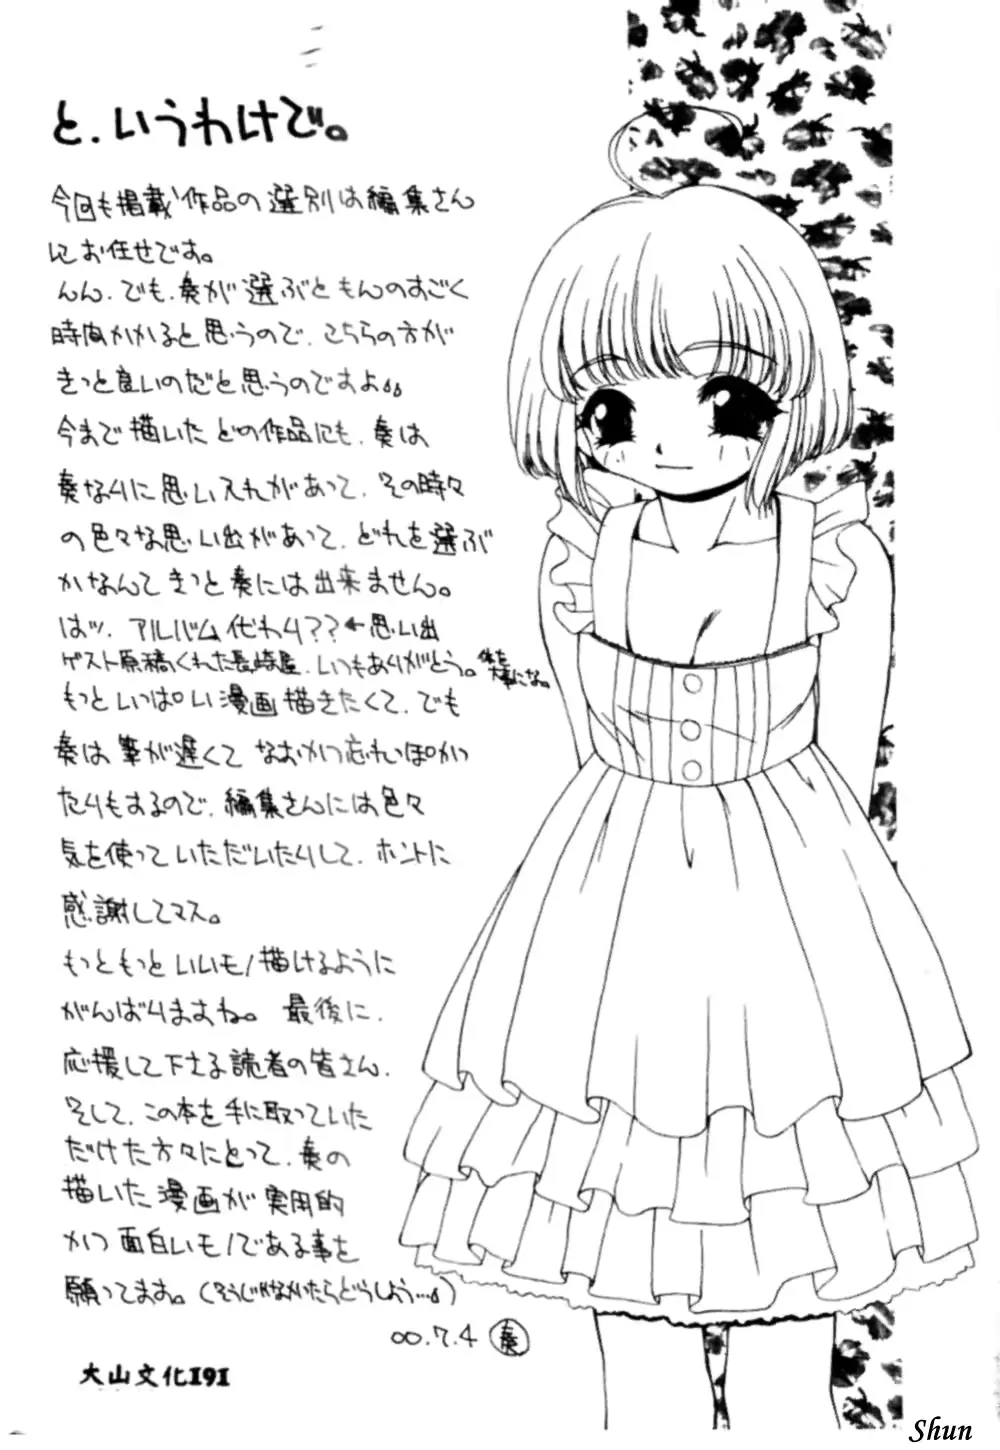 と、いうわけで。
今回も掲載作品の選別は編集さん
にお任せです。
んん、でも、奏が選ぶともんのすごく
時間かかると思うので、こちらの方が
きっと良いのだと思うのですよ。
今まで描いたどの作品にも、奏は
奏なりに思い入れがあって、その時々
の色々な思い出があって、どれを選ぶ
かなんてきっと奏には出来ません。
はッ、アルバム代わり??←思い出
ゲスト原稿くれた長崎屋、いつもありがとう。体を大事にな。
もっといっぱい漫画描きたくて、でも
奏は筆が遅くてなおかつ忘れっぽかっ
たりもするので、編集さんには色々
気を使っていただいたりして、ホントに
感謝してマス。
もっともっといいモノ描けるように
がんばりますね。最後に、
応援して下さる読者の皆さん、
そして、この本を手に取っていた
だけた方々にとって、奏の
描いた漫画が実用的
かつ面白いモノである事を
願ってます。(そうじゃなかったらどうしよう…)
00.7.4 奏
大山文化191
Shun